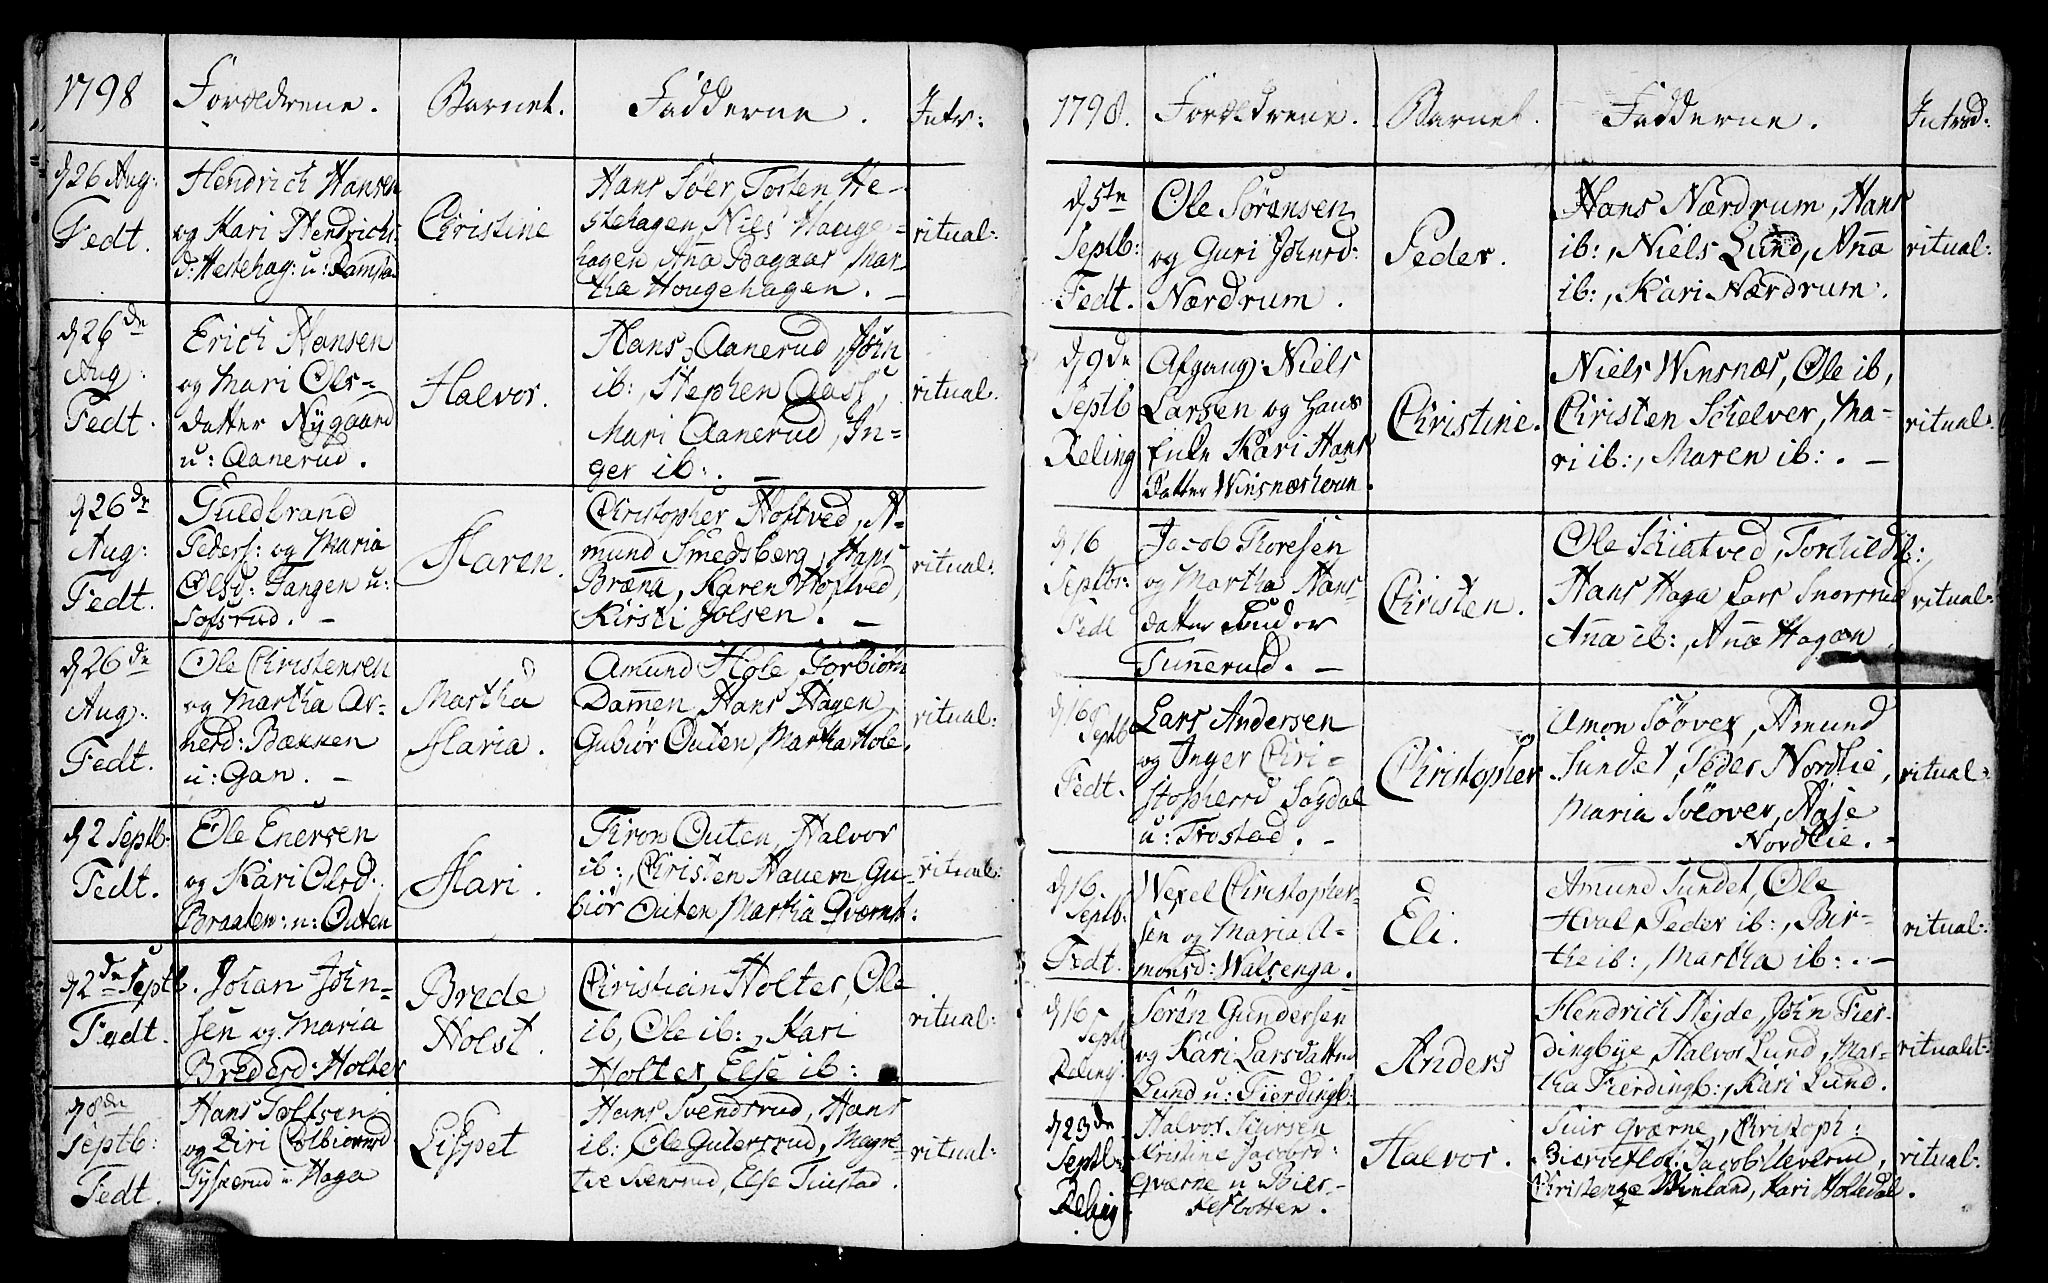 1798 Forældrene. Barnet. Fadderne. Intr:
d 26 Aug:
Fedt.
Hendrich Hansen
og Kari Hendrichs
d: Hestehag: u: Ramstad
Christine
Hans Søer, Torsten He-
stehagen, Niels Houge-
hagen Anna Bagaas Mar-
tha Hougehagen. -
ritual:
d 26de
Aug:
Fedt.
Erich Hansen
og Mari Ols-
datter Nygaard
u: Aanerud.
Halvor.
Hans Aanerud, John
ib:, Stephen Aass,
Mari Aanerud, In-
ger ib:. -
ritual.
d 26de
Aug:
Fedt.
Guldbrand
Peders: og Maria
Olsd: Tangen u:
Sofsrud. -
Maren.
Christopher Hoftved, A-
mund Smedsberg, Hans
Bræna, Karen Hoftved,
Kirsti Jolsen. -
ritual:
d 26de
Aug:
Fedt.
Ole Christensen
og Martha Ar-
nesd: Bækken
u: Gan. -
Martha
Maria.
Amund Hole, Torbiørn
Dammen, Hans Hagen
Gubiør Outen, Martha Hole.
ritual:
d 2 Septb:
Fedt.
Ole Enersen
og Kari Olsd:
Braaten: u: Outen
Mari.
Thron Outen, Halvor
ib:, Christen Hauern Gu-
biør Outen Martha Qværnt:
ritual:
d 2de Septb.
Fedt.
Johan John-
sen og Maria
Bredesd: Holter
Brede
Holst.
Christian Holter, Ole
ib, Ole ib:, Kari
Holter, Else ib:
ritual:
d 8de
Septb:
Fedt.
Hans
og Siri Colbiørnsd
u Haga
Lispet
Hans Svendsrud, Hans
ib:, Ole Gutersrud, Magre-
the Svensrud, Else Tiustad.
ritual:
1798. Forældrene. Barnet. Fadderne. Introd:
d 5te
Septb:
Fedt.
Ole Sørensen
og Guri Johnsd:
Nærdrum.
Peder.
Hans Nærdrum, Hans
ib:, Niels Lund, Anna
ib:, Kari Nærdrum.
ritual:
d 9de
Septb
Reling
Afgang: Niels
Larsen og Hans
Enke Kari Hans
datter Winsnæshoun.
Christine.
Niels Winsnæs, Ole ib,
Christen Schelver, Ma-
ri ib:, Maren ib:. -
ritual:
d 16
Septbr:
Fedt
Jacob Thoresen
og Martha Hans
datter under
Tunnerud. -
Christen.
Ole Schiatved, Torchild ib:,
Hans Haga, Lars Snorsrud
Anna ib:, Anna Hagan
ritual:
d 16
Septb
Fedt.
Lars Andersen
og Inger Chri-
stophersd Sagdal
u: Trostad. -
Christopher
Amon Søover, Amund
Sundet, Peder Nordlie,
Maria Søover, Aase
Nordlie. -
ritual:
d 16.
Septb:
Fedt.
Wexel Christopher-
sen og Maria A-
monsd: Walsenga.
Eli.
Amund Sundet, Ole
Hval, Peder ib:, Bir-
the ib:, Martha ib:. -
ritual:
d 16
Septb
Reling:
Søren Gundersen
og Kari Larsdatter
Lund u: Fierdingb:
Anders
Hendrich Hejde, John Fier-
dingbye, Halvor Lund, Mar-
tha Fierdingb:, Kari Lund.
ritualit:
d 23de
Septb:
Reling
Halvor Siursen
Kristine Jacobsd:
Qværne u Bier-
keslotten.
Halvor.
Siur Qværne, Christoph:
Bierkeslot: Jacob Ueverud,
Winland, Kari Holtedal.
ritual: